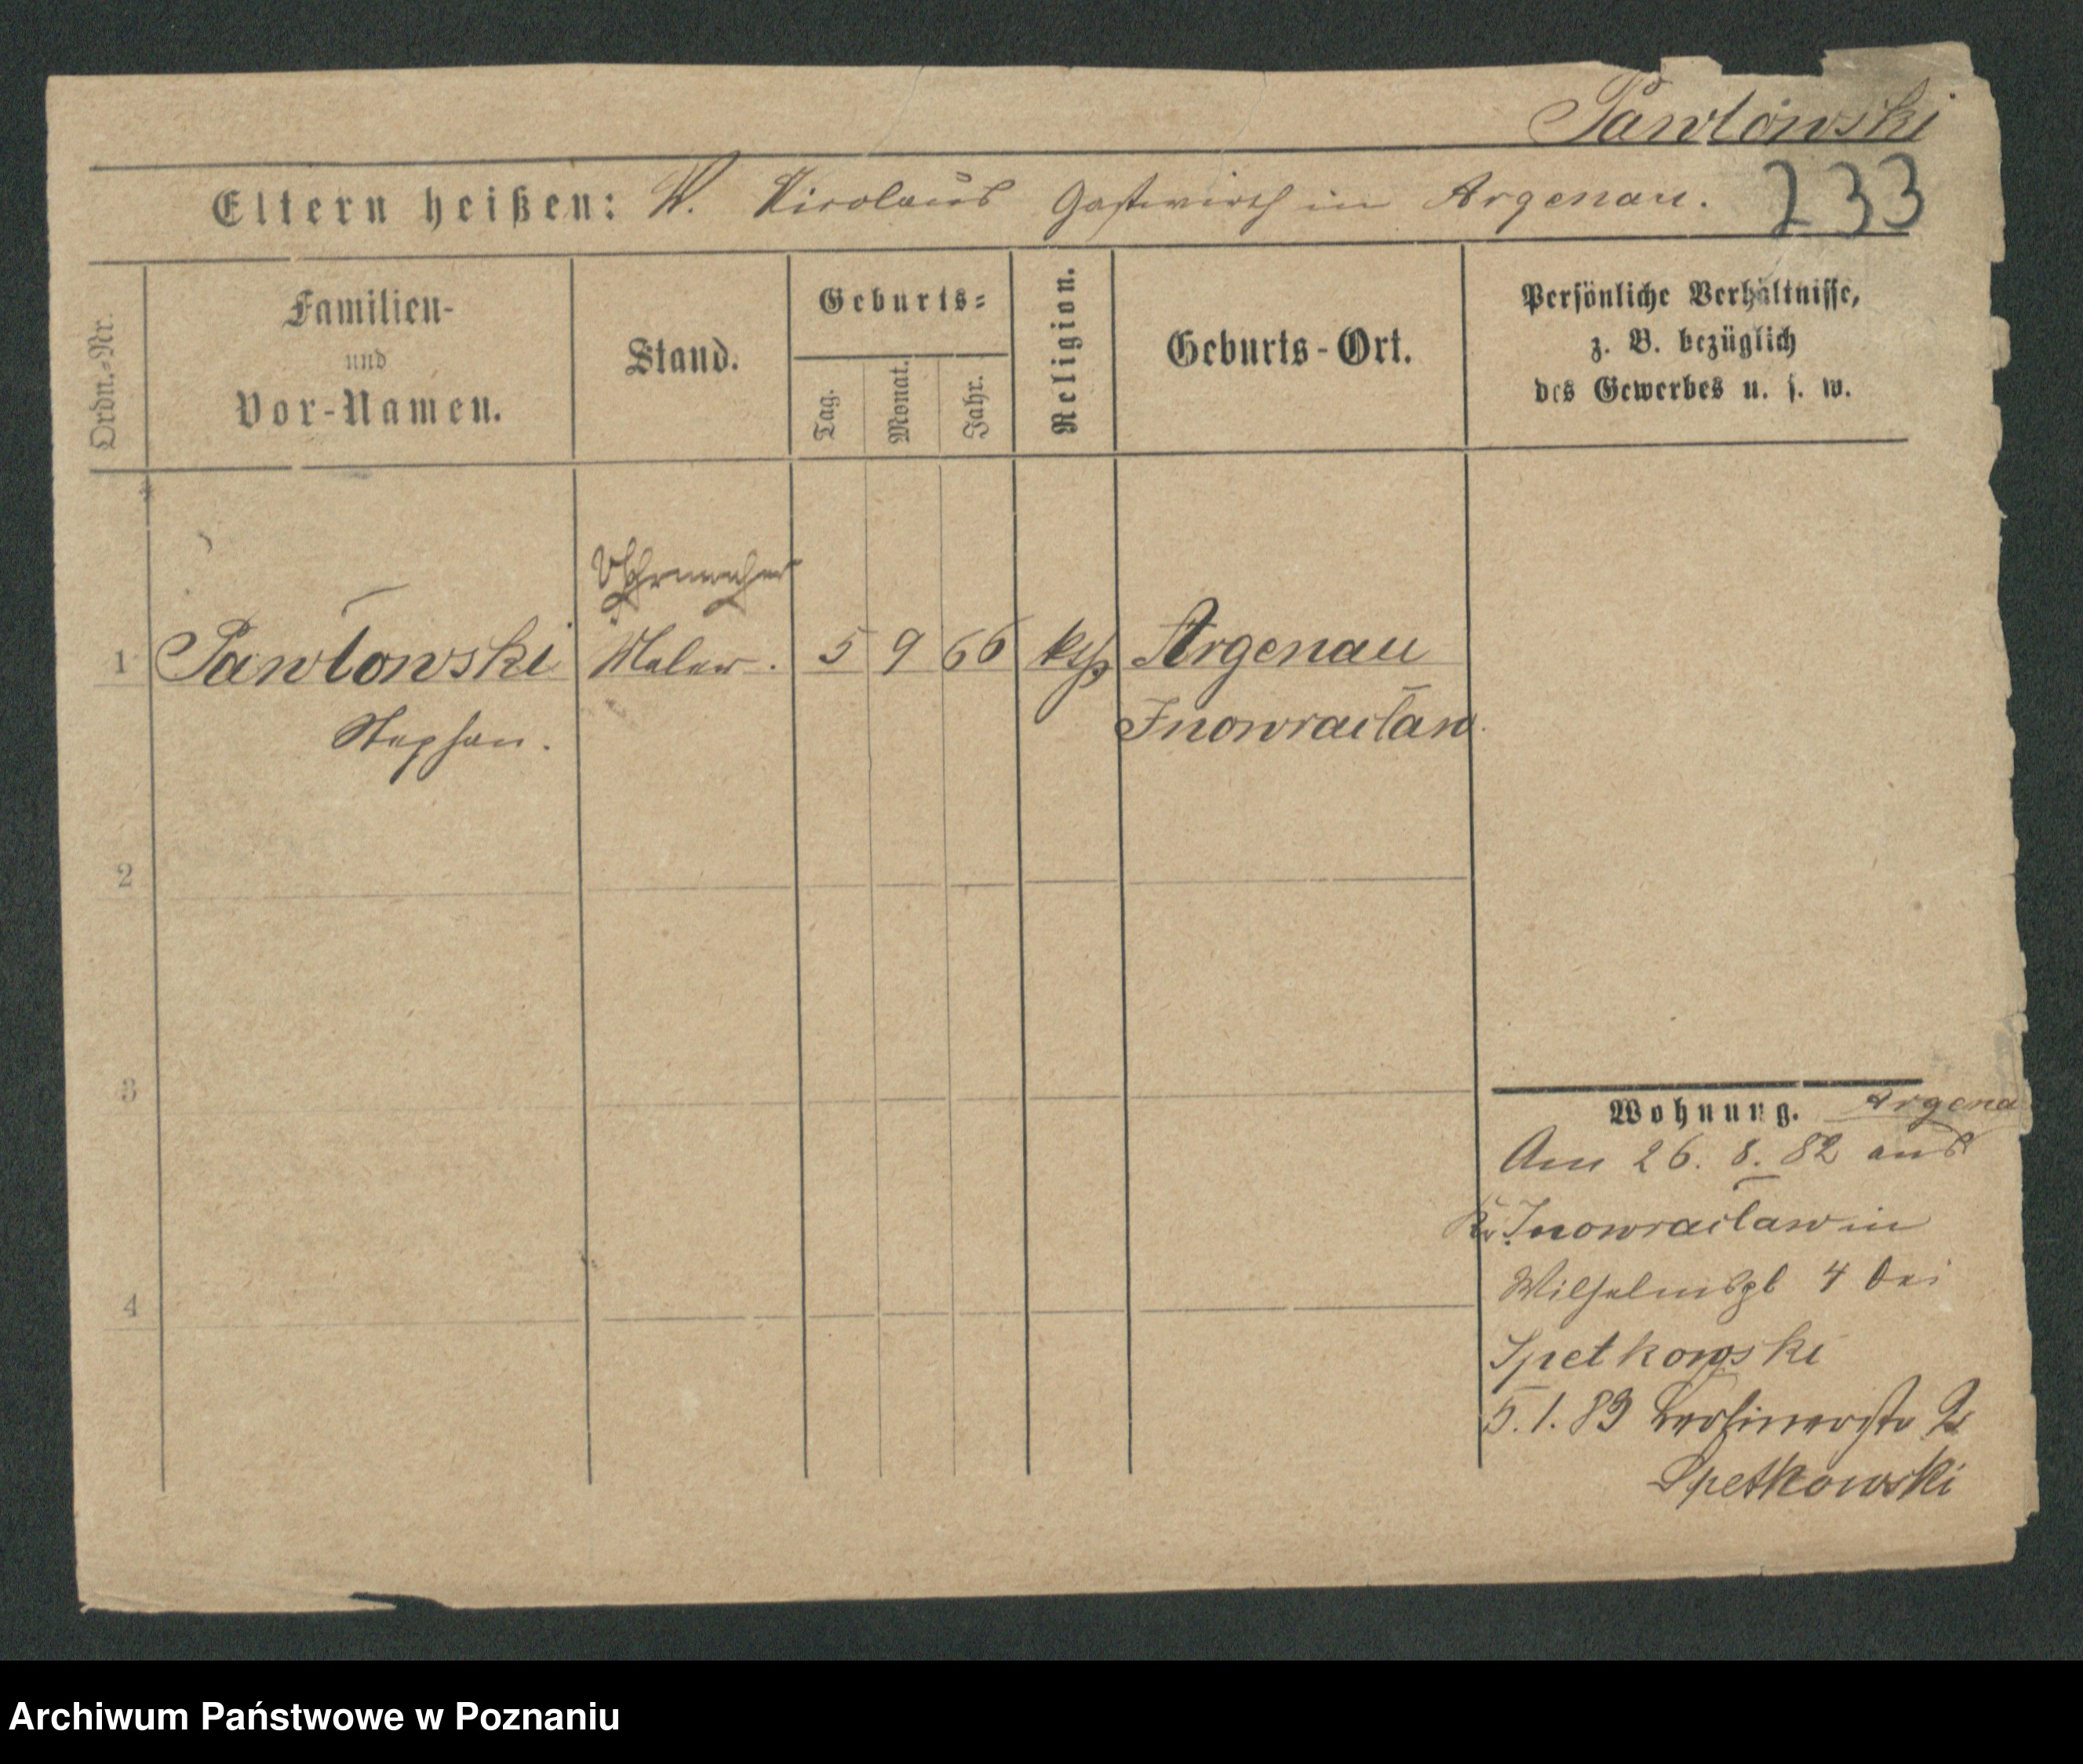 Pawłowski
Eltern heißen: V. Nicolaus Gastwirth in Argenau. 233
Ordn.-Nr.
Familien-
und
Vor-Namen.
Stand.
Geburts-
Tag.
Monat.
Jahr.
Religion.
Geburts-Ort.
Persönliche Verhältnisse,
z. B. bezüglich
des Gewerbes u. s. w.
Uhrmacher
1 Pawłowski Maler. 5 9 66 kth Argenau
Stephan. Inowracław.
2
3
4
Wohnung. Argena
Am 26. 8. 82 aus
Kr Inowracław in
Wilhelmspl 4 bei
Spetkowski
5. 1. 83 Berlinerstr 2
Spetkowski
Archiwum Państwowe w Poznaniu